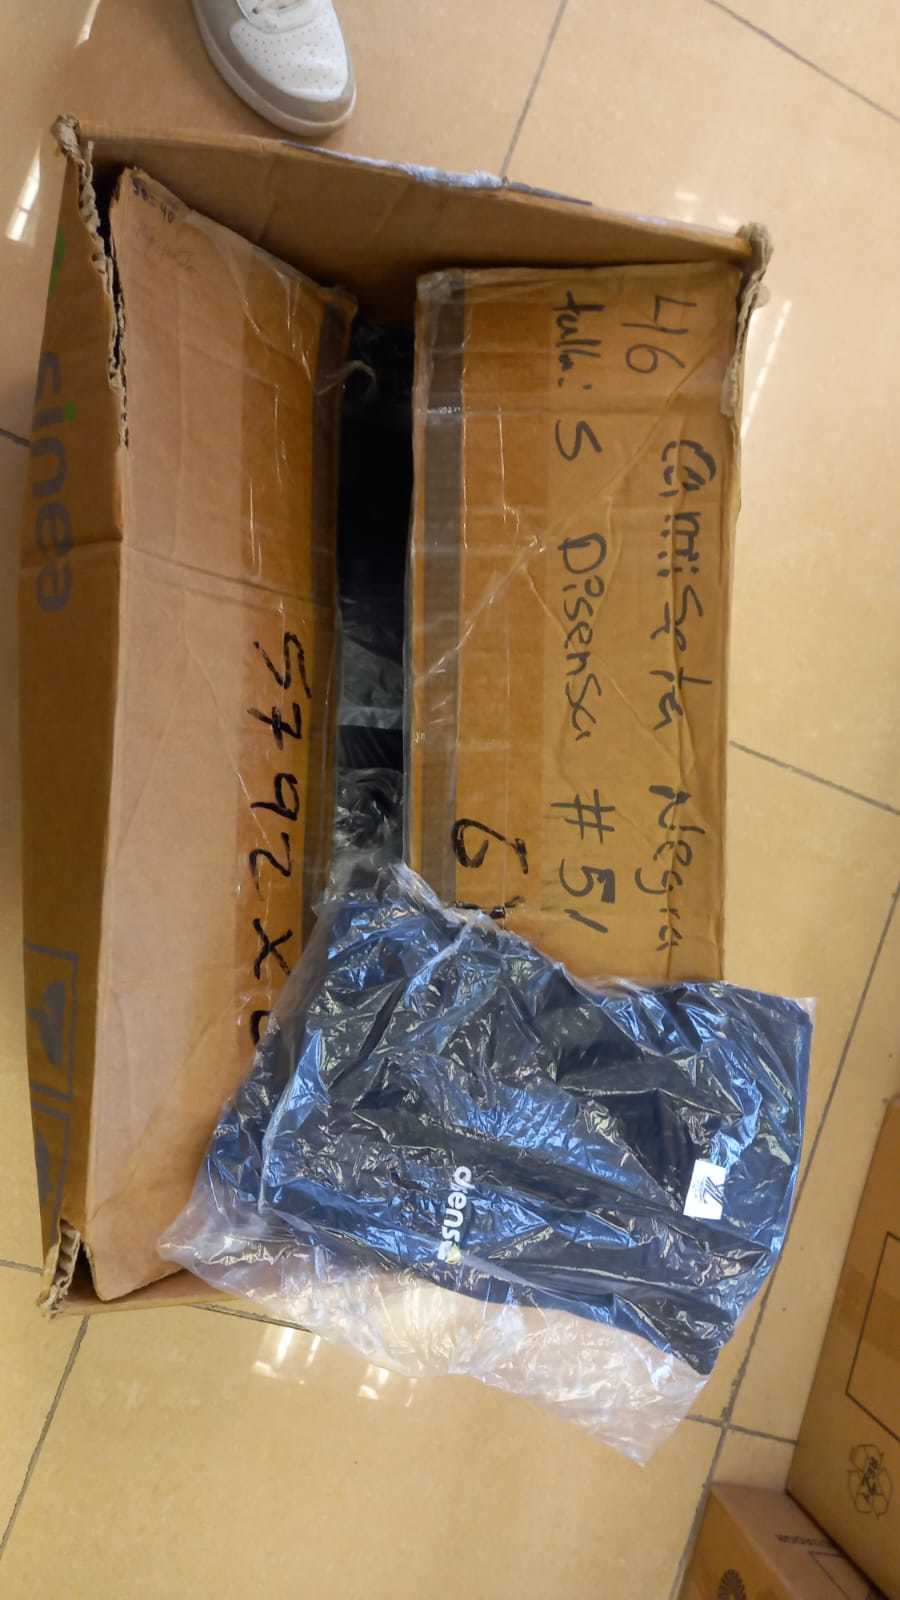 46 Camiseta Negra
talla: S Disensa #51
6
5792x
38=40
sinea
disensa